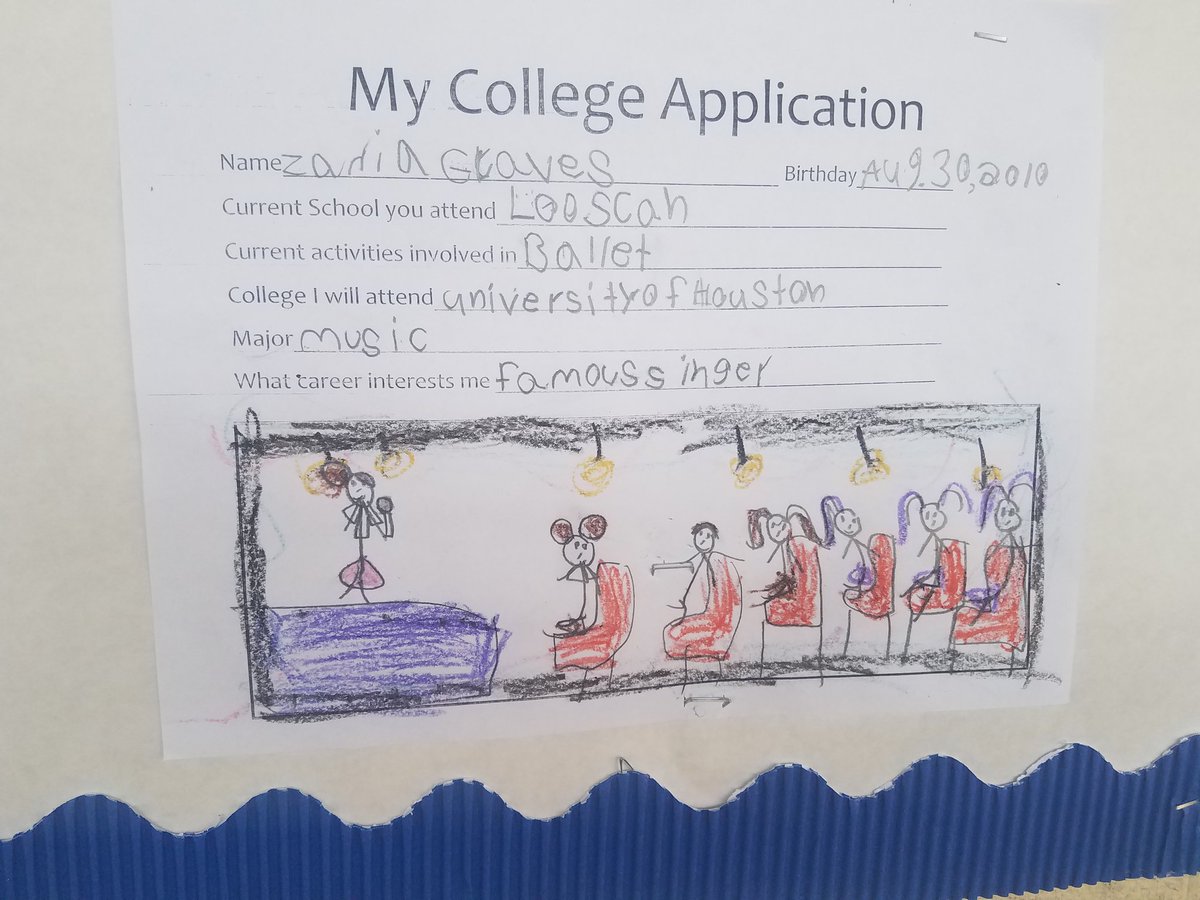 My College Application
Name Zaria Graves Birthday Aug. 30, 2010
Current School you attend Looscan
Current activities involved in Ballet
College I will attend university of Houston
Major music
What career interests me famous singer